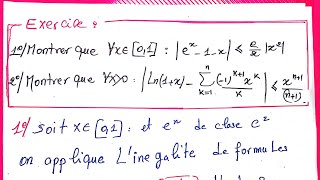 Exercice :
1°/ Montrer que ∀x∈[0,1] : |e^x-1-x| ≤ e/2 |x²|
2°/ Montrer que ∀x>0 : |Ln(1+x) - Σ_{k=1}^{n} (-1)^{k+1} x^k / k| ≤ x^{n+1}/(n+1)
1°/ Soit x∈[0,1] : et e^x de clase c²
on applique L'inegalite de formules